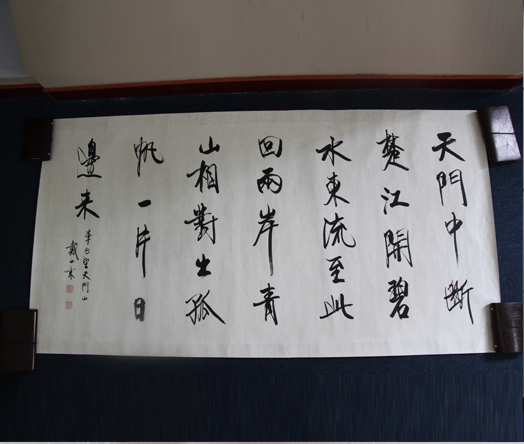 天門中斷
楚江開碧
水東流至此
回兩岸青
山相對出孤
帆一片日
邊来
李白望天門山
戴小京